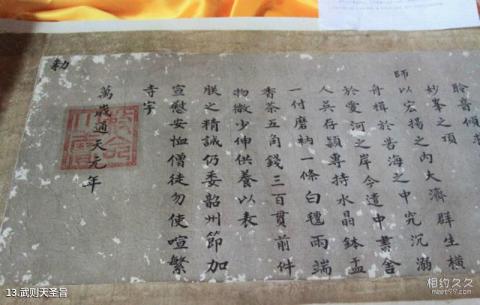 聆音傾
妙峯之頂
師以宏揚之内大濟群生横
舟楫於苦海之中究沉溺
於愛河之岸今遣中書舍
人吳存穎專持水晶鉢盂
一付磨衲一條白氎兩端
香茶五角錢三百貫前件
物微少伸供養以表
朕之精誠仍委韶州節加
宣慰安恤僧徒勿使喧繁
寺宇
萬歲通天元年
勅
13.武则天圣旨
相约久久
meet99.com